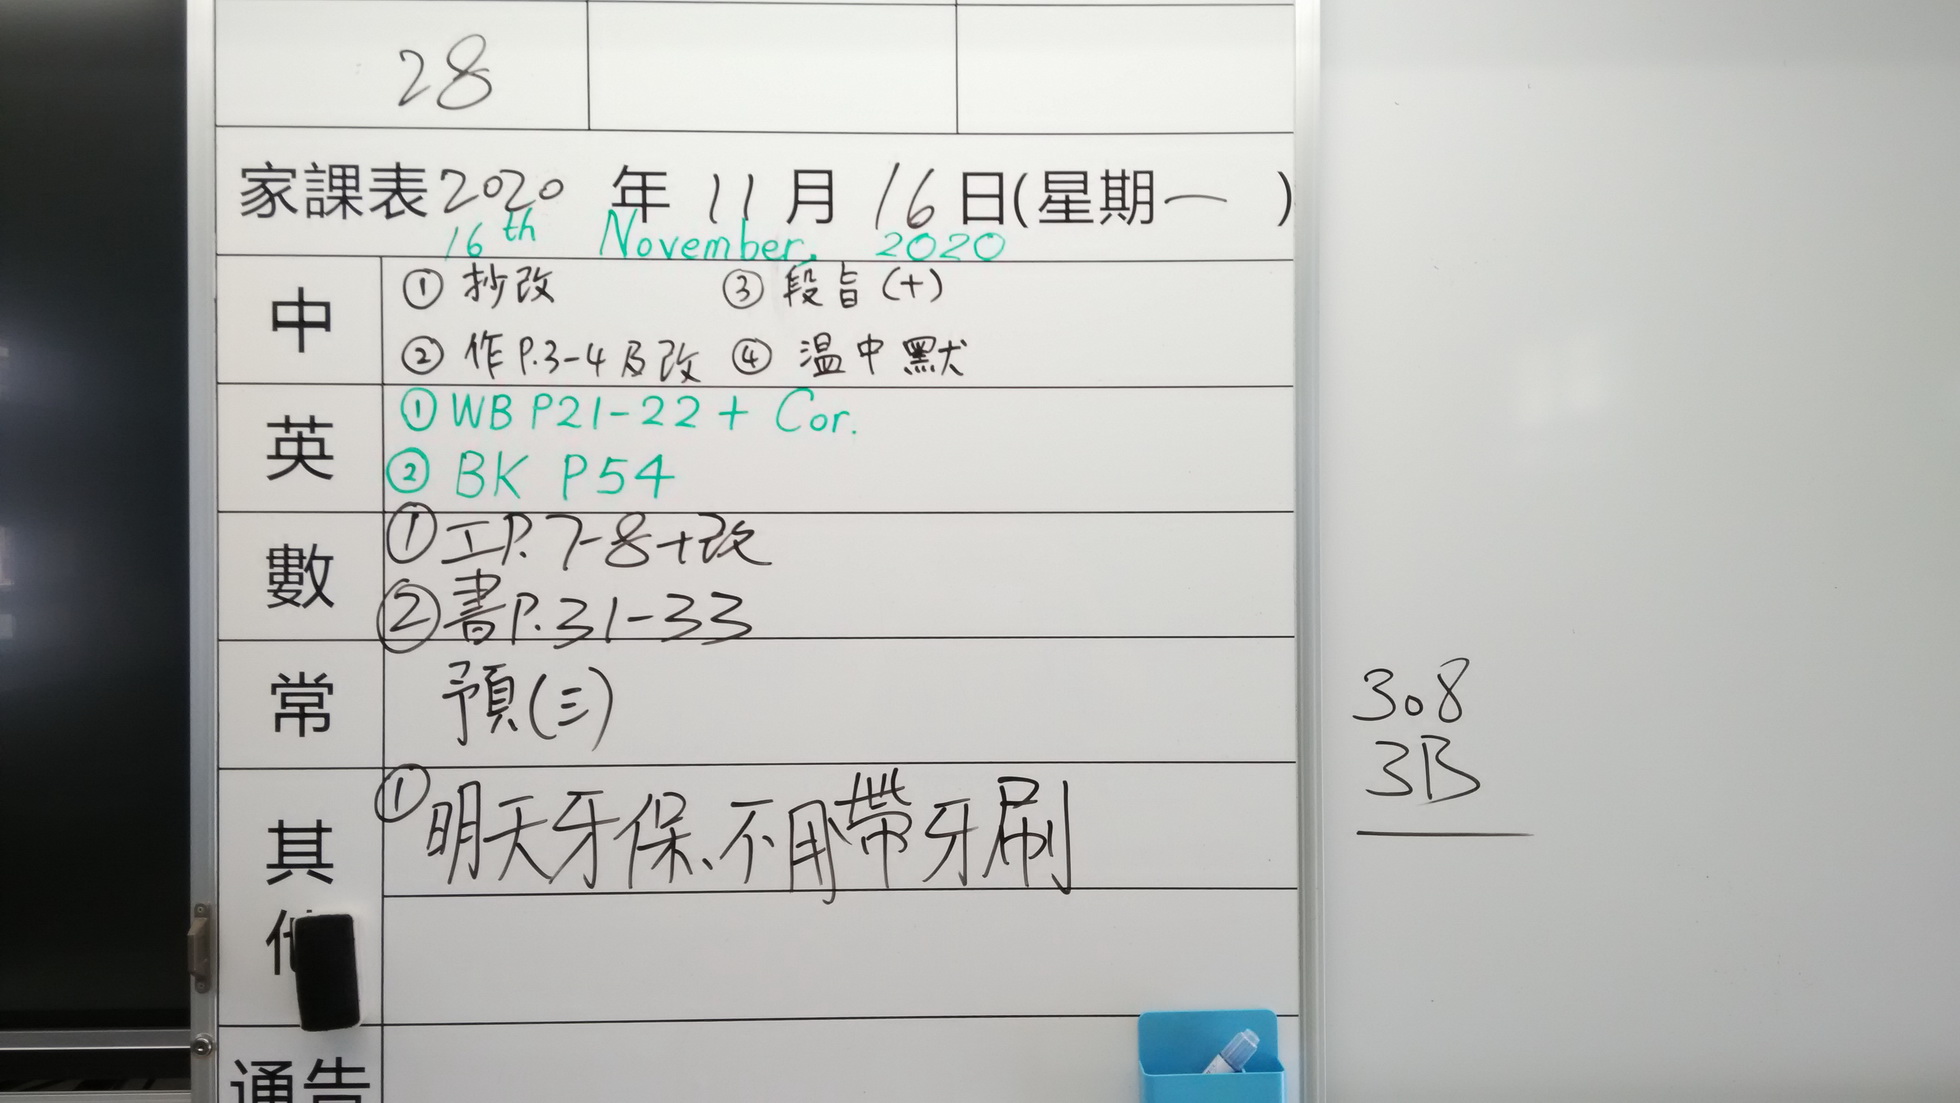 28
家課表2020年11月16日(星期一)
16th November, 2020
中
① 抄改 ③ 段旨(十)
② 作P.3-4及改 ④ 温中默
英
① WB P21-22 + Cor.
② BK P54
數
① 工P.7-8+改
② 書P.31-33
常
預(三)
其他
① 明天牙保、不用帶牙刷
通告
308
3B